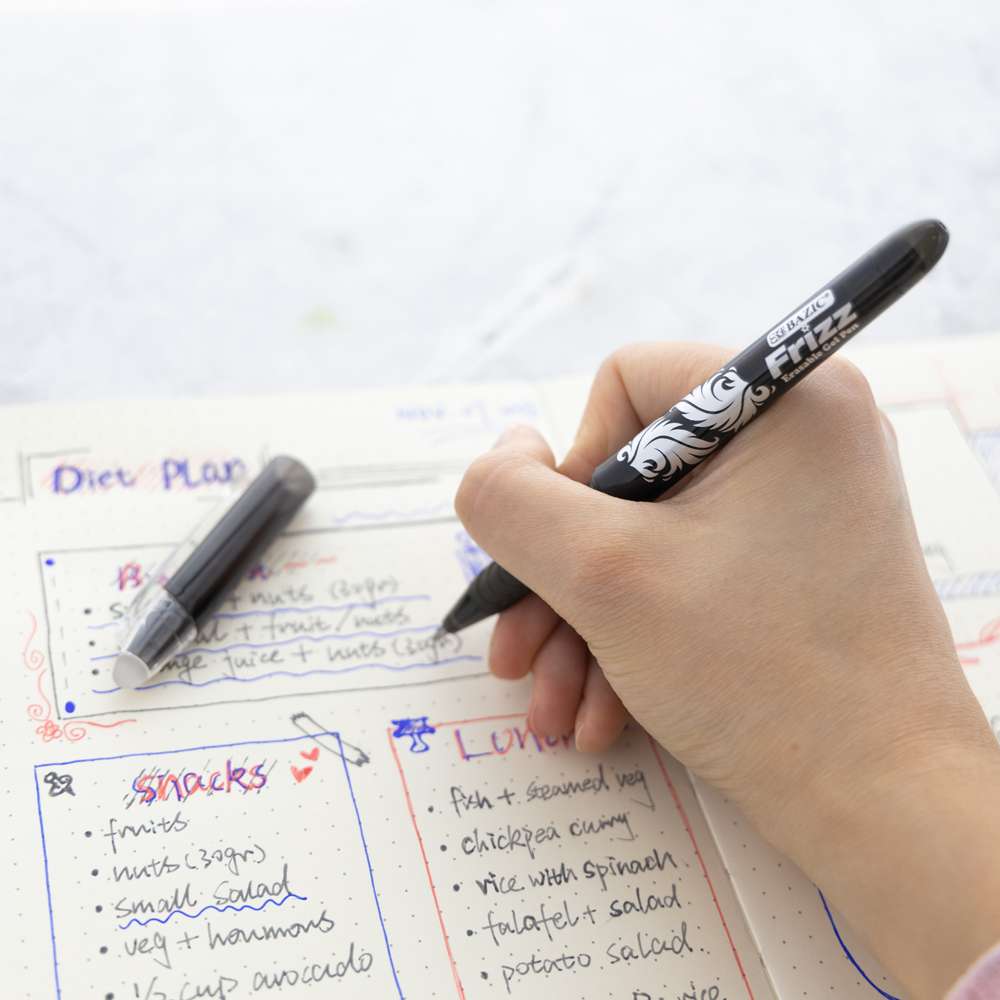 BAZIC
Frizz
Erasable Gel Pen
Diet Plan
+ nuts (30gr)
+ fruit/nuts
juice + nuts (30gr)
Snacks
• fruits
• nuts (30gr)
• small salad
• veg + hommons
• 1/2 cup avocado
Lunch
• fish + steamed veg
• chickpea curry
• rice with spinach
• falafel + salad
• potato salad